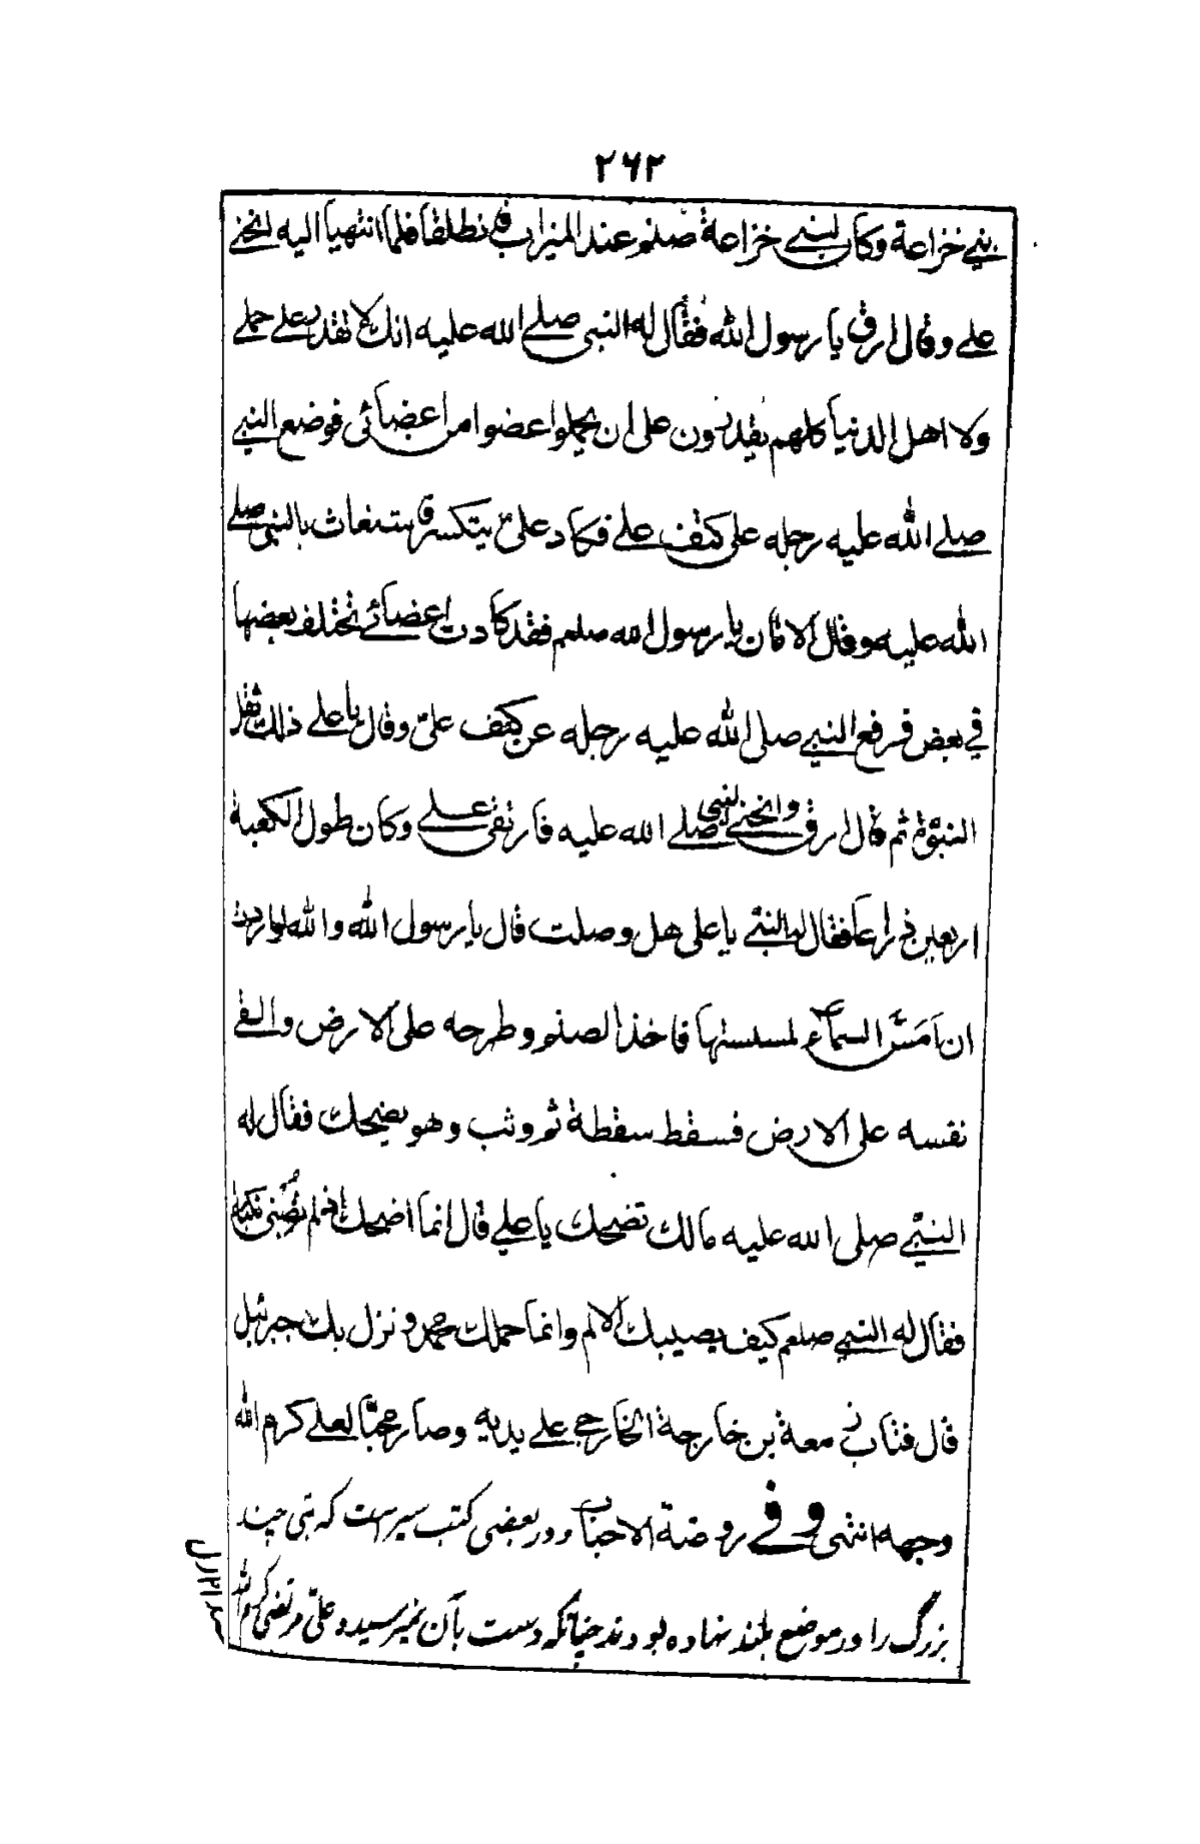 ۲۶۲
بني خزاعة وكان لبني خزاعة صنم عند الميزاب فانطلقا فلما انتهيا اليه انحنى
علي وقال ارق يا رسول الله فقال له النبى صلے الله عليه انك لا تقدر علے حملے
ولا اهل الدنيا كلهم يقدرون على ان يحملوا عضوا من اعضائى فوضع النبي
صلے الله عليه رجله على كتف علے فكاد علىّ يتكسر فاستغاث بالنبى صلے
الله عليه وقال الامان يا رسول الله صلعم فقد كادت اعضائے تختلف بعضها
في بعض فرفع النبي صلى الله عليه رجله عن كتف علىّ وقال يا علے ذلك ثقل
النبوّة ثم قال ارق وانحنى النبي صلے الله عليه فارتقى علے وكان طول الكعبة
اربعين ذراعا فقال له النبي يا على هل وصلت قال يا رسول الله والله لو اردت
ان اَمَسَّ السماء لمسستها فاخذ الصنم وطرحه على الارض والقى
نفسه على الارض فسقط سقطة ثم وثب وهو يضحك فقال له
النبي صلى الله عليه مالك تضحك يا علي قال انما اضحك اذ لم يُصبنى نكبة
فقال له النبي صلعم كيف يصيبك الالم وانما حملك محمد ونزل بك جبرئيل
قال فتاب معة بن خارجة الخارجي علے يديه وصار محبّا لعلے كرم الله
وجهه انتهى وفي روضة الاحباب و در بعضى كتب سير است كه بتى چند
بزرگ را در موضع بلند نهاده بودند چنانكه دست بآن نميرسيد و علىّ مرتضى كرم الله